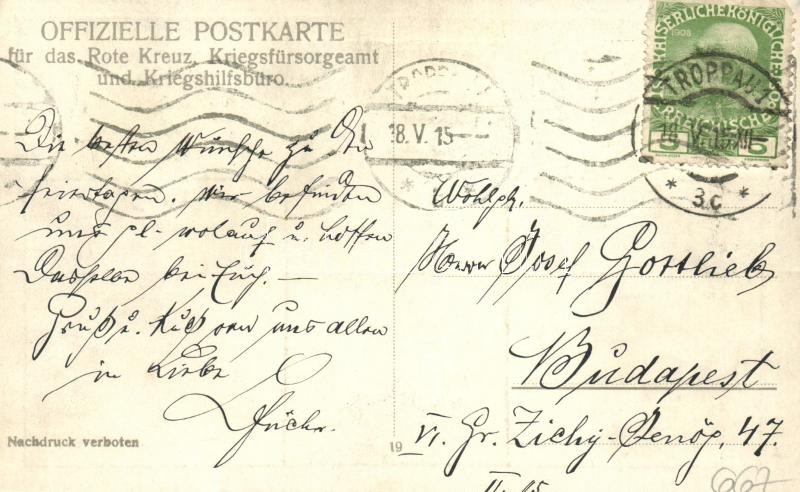 OFFIZIELLE POSTKARTE
für das Rote Kreuz, Kriegsfürsorgeamt
und Kriegshilfsbüro.
KAISERLICHE KÖNIGLICHE
1908
5 5
TROPPAU 1
18. V. 15
* *
TROPPAU 1
18. V. 15
* 3c *
Die besten Wünsche zu den
Feiertagen. Wir befinden
uns gl. wolauf u. hoffen
Dasselbe bei Euch. —
Gruß u. Kuß von uns allen
in Liebe
Wohlgb.
Herrn Josef Gottlieb
Budapest
VI. Gr. Zichy-Jenőg. 47.
II. 15
Nachdruck verboten
19
667